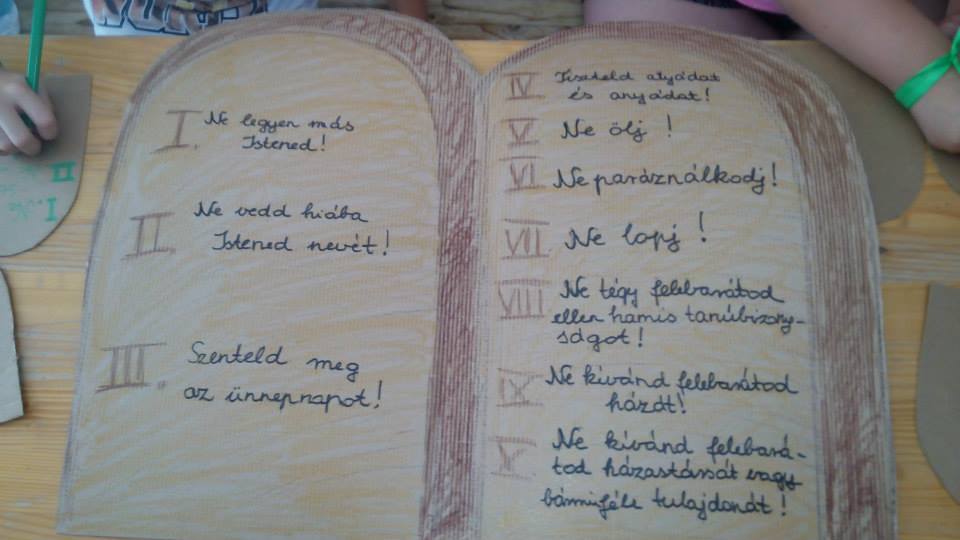 I. Ne legyen más
Istened!
II. Ne vedd hiába
Istened nevét!
III. Szenteld meg
az ünnepnapot!
IV Tiszteld atyádat
és anyádat!
V Ne ölj!
VI Ne paráználkodj!
VII Ne lopj!
VIII Ne tégy felebarátod
ellen hamis tanúbizony-
ságot!
IX Ne kívánd felebarátod
házát!
X Ne kívánd felebará-
tod házastársát vagy
bármiféle tulajdonát!
I. Ne
II